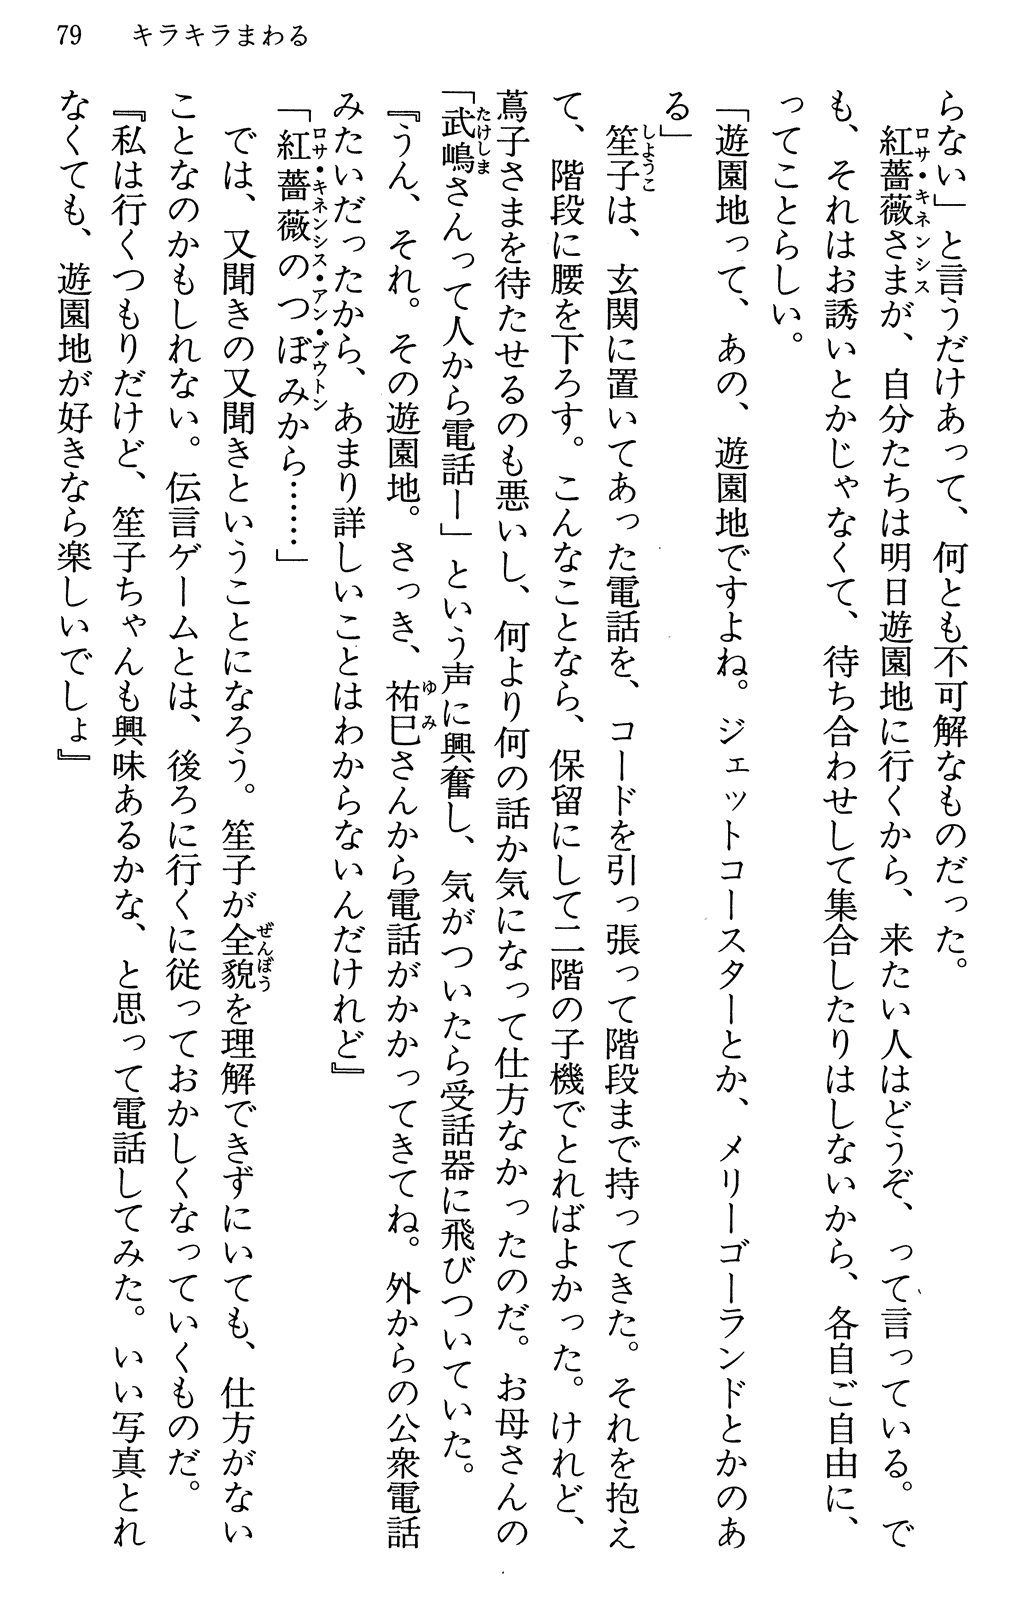 79　キラキラまわる
らない」と言うだけあって、何とも不可解なものだった。
　紅薔薇さまが、自分たちは明日遊園地に行くから、来たい人はどうぞ、って言っている。で
も、それはお誘いとかじゃなくて、待ち合わせして集合したりはしないから、各自ご自由に、
ってことらしい。
「遊園地って、あの、遊園地ですよね。ジェットコースターとか、メリーゴーランドとかのあ
る」
　笙子は、玄関に置いてあった電話を、コードを引っ張って階段まで持ってきた。それを抱え
て、階段に腰を下ろす。こんなことなら、保留にして二階の子機でとればよかった。けれど、
蔦子さまを待たせるのも悪いし、何より何の話か気になって仕方なかったのだ。お母さんの
「武嶋さんって人から電話ー」という声に興奮し、気がついたら受話器に飛びついていた。
『うん、それ。その遊園地。さっき、祐巳さんから電話がかかってきてね。外からの公衆電話
みたいだったから、あまり詳しいことはわからないんだけれど』
「紅薔薇のつぼみから……」
　では、又聞きの又聞きということになろう。笙子が全貌を理解できずにいても、仕方がない
ことなのかもしれない。伝言ゲームとは、後ろに行くに従っておかしくなっていくものだ。
『私は行くつもりだけど、笙子ちゃんも興味あるかな、と思って電話してみた。いい写真とれ
なくても、遊園地が好きなら楽しいでしょ』
ロサ・キネンシス
しようこ
たけしま
ゆみ
ロサ・キネンシス・アン・ブウトン
ぜんぼう